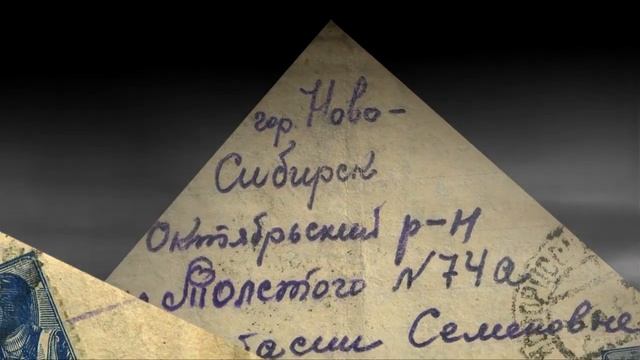 гор. Ново-
Сибирск
Октябрьский р-н
Толстого N 74а
Семеновне